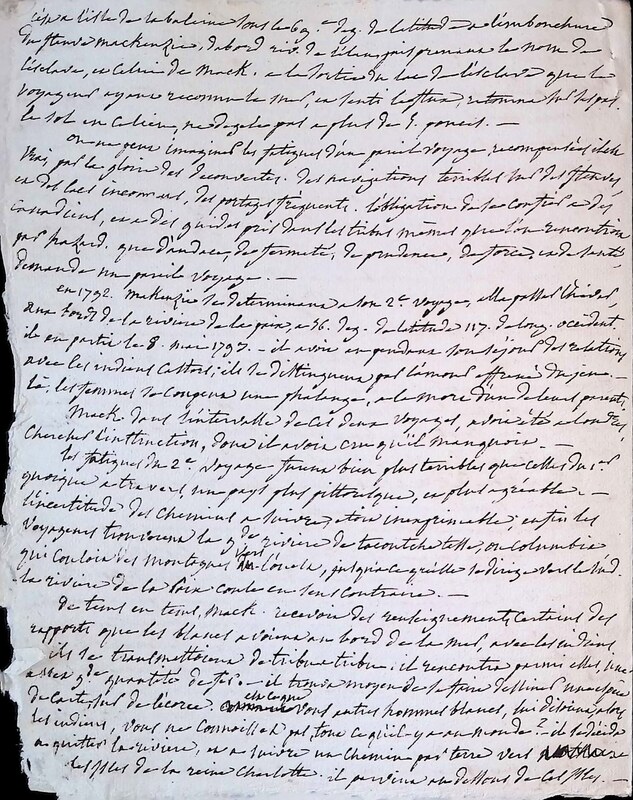 à l'isle de la baleine sous le 69.e deg. de latitude à l'embouchure
du fleuve mackenzie, d'abord riv. de l'élan, puis prenant le nom de
l'esclave, et celui de Mack. à la sortie du lac de l'esclave que le
voyageur ayant reconnu la mer, et senti le flux, retourna sur ses pas.
le sol en ce lieu, ne dégele pas à plus de 5. pouces. —
on ne peut imaginer les fatigues d'un pareil voyage recompensées il est
vrai, par la gloire des decouvertes. des navigations terribles sur des fleuves,
et des lacs inconnus, des portages fréquents. l'obligation de se confier à des
canadiens, et à des guides pris dans les tribus mêmes que l'on rencontroit
par hazard. que d'audace, de fermeté, de prudence, de force, et de santé
demande un pareil voyage. —
en 1792. Makenzie se determinant à son 2.e voyage, alla passer l'hiver,
aux bords de la riviere de la paix, à 56. deg. de latitude 117. de long. occident.
il en partit le 8. mai 1793. — il avoit eu pendant son séjour des relations
avec les indiens castors; ils se distinguent par l'amour effréné du jeu. —
là, les femmes se coupent une phalange, à la mort d'un de leurs parents,
Mack. dans l'intervalle de ces deux voyages, avoit été à londres,
chercher l'instruction, dont il avoit cru qu'il manquoit. —
les fatigues du 2.e voyage furent bien plus terribles que celles du 1.er
quoique à travers un pays plus pittoresque, et plus agréable. —
l'incertitude des chemins à suivre, étoit inexprimable; enfin les
voyageurs trouverent la g.de riviere de tacoutche tesse, ou columbia
qui couloit des montagnes vers l'ouest, jusqu'à ce qu'elle se dirige vers le sud.
la riviere de la paix coule en sens contraire. —
de tems en tems, Mack. recevoit des renseignements certains des
rapports que les blancs avoient au bord de la mer, avec les indiens
ils se transmettoient de tribu à tribu; il rencontra parmi elles, une
assez g.de quantité de fer. — il trouva moyen de se faire dessiner une espece
de carte sur de l'écorce. vous autres hommes blancs, lui disoient alors
les indiens, vous ne connoissez pas tout ce qu'il y a au monde? — il se décida
à quitter la riviere, et à suivre un chemin par terre vers
les isles de la reine Charlotte. il parvint au dessous de ces isles. —